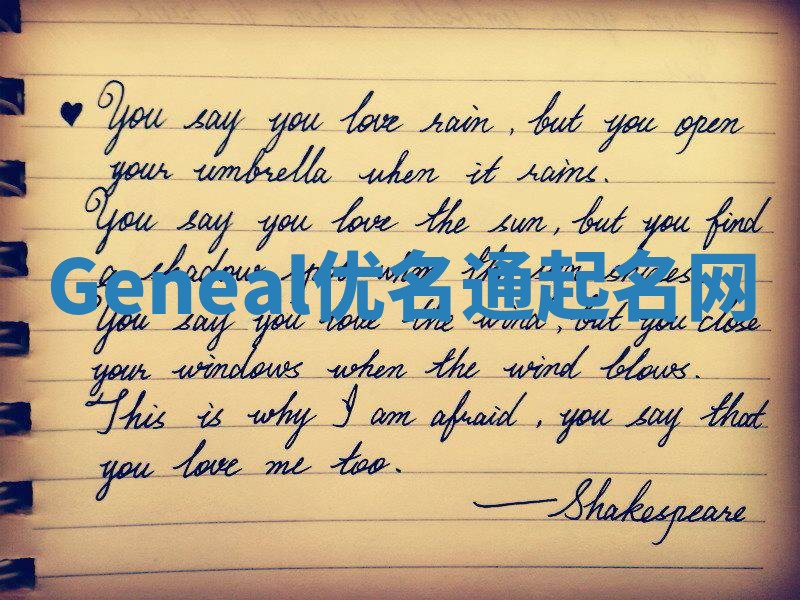 ♥ You say you love rain, but you open
your umbrella when it rains.
You say you love the sun, but you find
a shadow spot when the sun shines.
Geneal优名通起名网
You say you love the wind, but you close
your windows when the wind blows.
This is why I am afraid, you say that
you love me too.
—Shakespeare